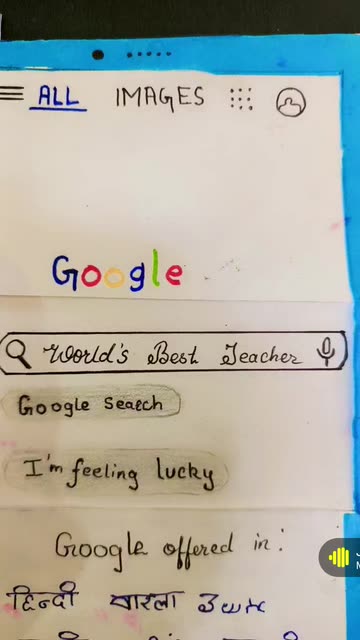 ALL IMAGES
Google
World's Best Teacher
Google Search
I'm feeling lucky
Google offered in:
हिन्दी বাংলা